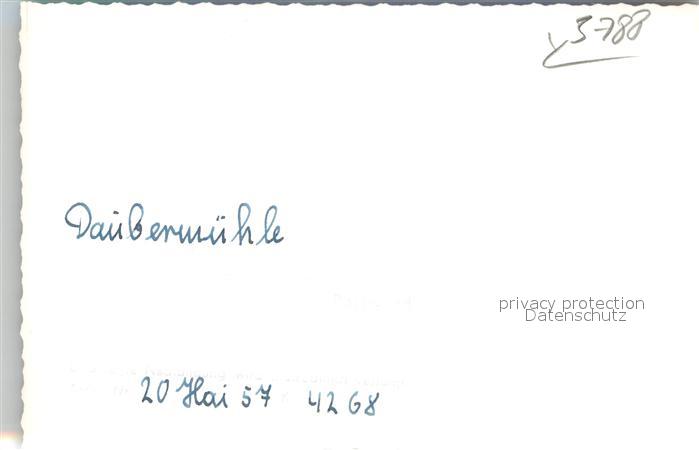 y3788
Daubermühle
privacy protection
Datenschutz
20 Mai 57 4268